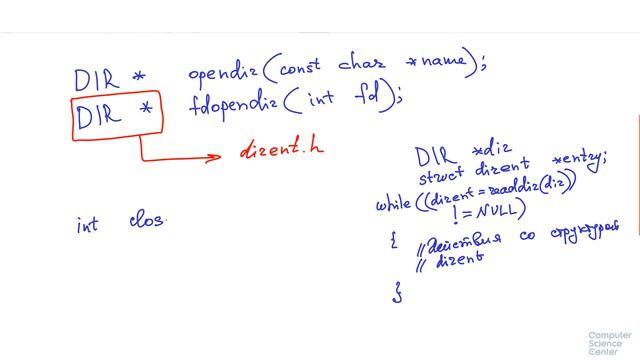 DIR * opendir(const char *name);
DIR * fdopendir(int fd);
dirent.h
int clos
DIR *dir
struct dirent *entry;
while((dirent=readdir(dir))
!=NULL)
{ //действия со структурой
// dirent
}
Computer
Science
Center